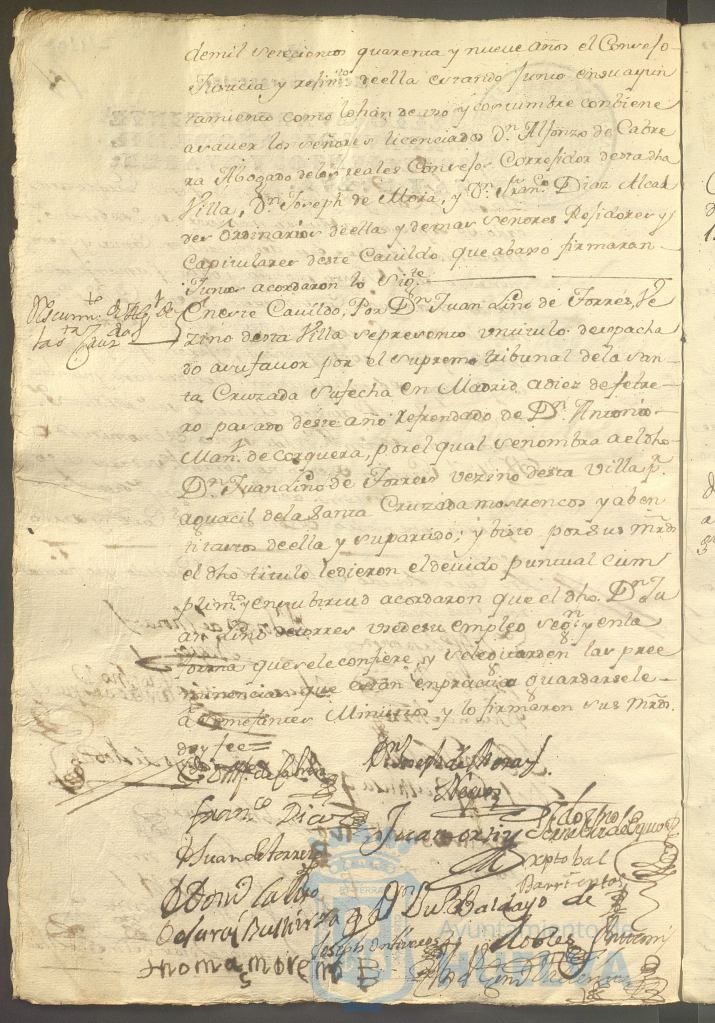 demil setecientos quarenta y nueve años el Consejo
Justicia y rejim.to deella estando Junto ensu ayun
tamiento como lohan de uso y costumbre combiene
asaver los señores licenciado D.n Alfonzo de Cabre
ra Abogado delos reales Consejos Correjidor destadha
Villa, D.n Joseph de Mora, y D.n Fran.co Diaz Alcal
des Ordinarios deella y demas señores Rejidores y
Capitulares deste Cavildo que abaxo firmaran
Juntos acordaron lo Sig.te
Eneste Cavildo, Por D.n Juan Lino de Torres, Ve
zino desta Villa sepresento untitulo despacha
do asufavor por el supremo tribunal dela san
ta Cruzada sufecha en Madrid adiez de febre
ro pasado deste año Refrendado de D.n Antonio
Man.l de corquera, porel qual senombra a el dho
D.n Juan Lino de Torres vezino desta Villa p.r
aguacil dela santa Cruzada mostrencos y aben
titatos deella y supartido; y bisto por sus mrds
el dho titulo ledieron el devido puntual cum
plim.to y ensubirtud acordaron que el dho D.n Ju
an Lino detorres usedesu empleo seg.n y enla
forma que sele confiere, y seleguarden las pree
minencias que estan enpractica guardarsele
a semejantes Ministros y lo firmaron sus mrds.
doy fee=
de Alg.l de
la s.ta Cruz.da
D.n Joseph de Mora
Fran.co Diaz
Juan ortiz
D Juan de torres
xptobal
Barrientos
Robles
Joseph
thomas moreno
Ayuntamiento de